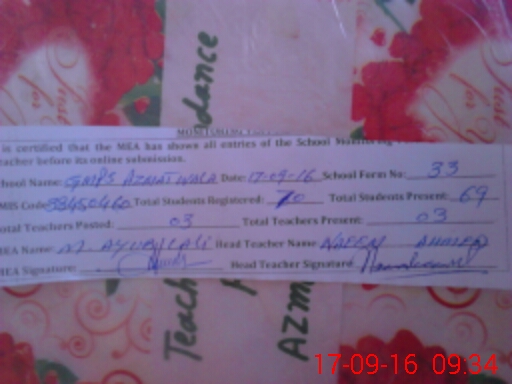 is certified that the MEA has shown all entries of the School Monitoring
teacher before its online submission.
School Name: GMPS AZMATWALA Date: 17-09-16 School Form No: 33
EMIS Code: 38450460 Total Students Registered: 70 Total Students Present: 69
Total Teachers Posted: 03 Total Teachers Present: 03
MEA Name: M. AYUB Head Teacher Name: NAEEM AHMED
MEA Signature: Head Teacher Signature:
Just for
Just for
Teach
dance
Azm
17-09-16 09:34